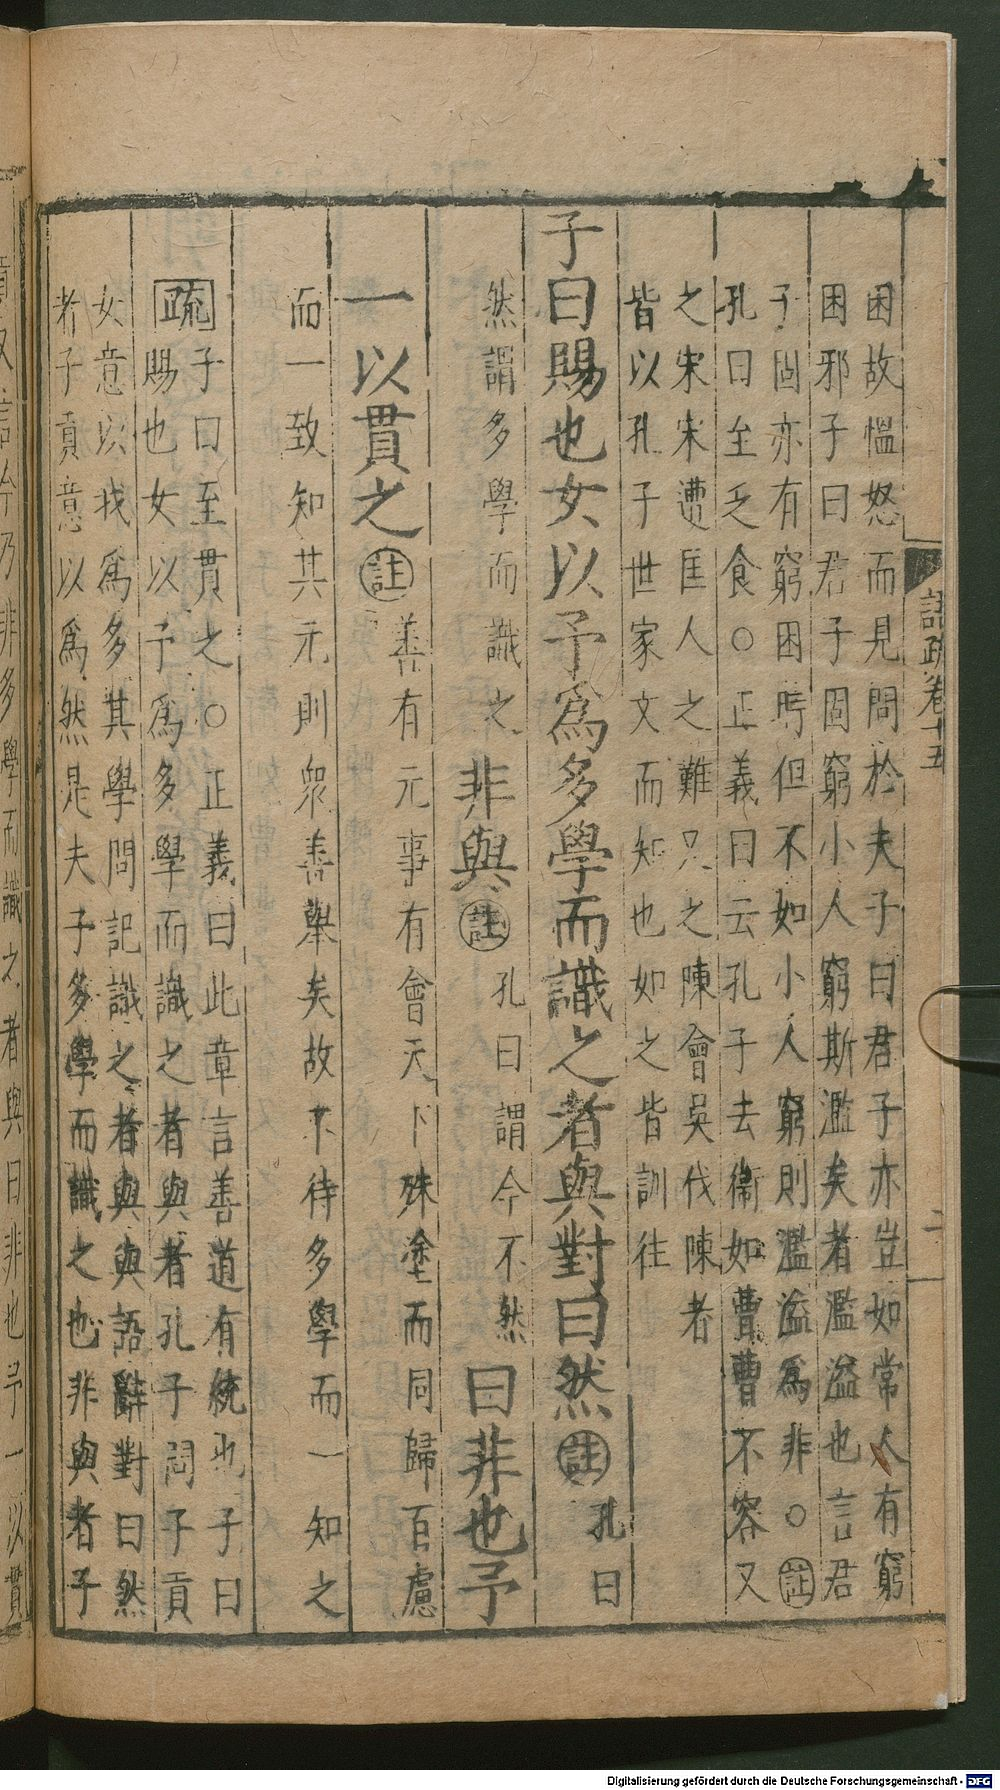 語疏卷十五
二
困故慍怒而見問於夫子曰君子亦豈如常人有窮
困邪子曰君子固窮小人窮斯濫矣者濫溢也言君
子固亦有窮困時但不如小人窮則濫溢為非○註
孔曰至乏食○正義曰云孔子去衞如曹曹不容又
之宋宋遭匡人之難又之陳會吳伐陳者
皆以孔子世家文而知也如之皆訓往
子曰賜也女以予爲多學而識之者與對曰然註孔曰
然謂多學而識之非與註孔曰謂今不然曰非也予
一以貫之註善有元事有會天下殊塗而同歸百慮
而一致知其元則衆善舉矣故不待多學而一知之
疏子曰至貫之○正義曰此章言善道有統也子曰
賜也女以予爲多學而識之者與者孔子問子貢
女意以我爲多其學問記識之者與與語辭對曰然
者子貢意以爲然是夫子多學而識之也非與者子
貢又言今乃非多學而識之者與曰非也予一以貫
Digitalisierung gefördert durch die Deutsche Forschungsgemeinschaft - DFG